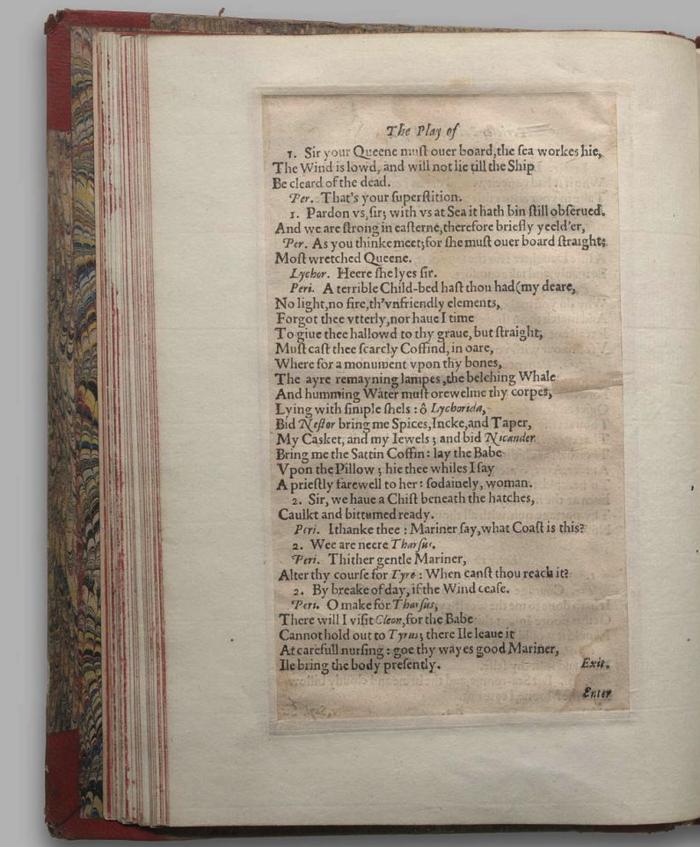 The Play of
1. Sir your Queene must ouer board,the sea workes hie,
The Wind is lowd, and will not lie till the Ship
Be cleard of the dead.
Per. That's your superstition.
1. Pardon vs,sir; with vs at Sea it hath bin still obserued.
And we are strong in easterne,therefore briefly yeeld'er,
Per. As you thinke meet;for she must ouer board straight:
Most wretched Queene.
Lychor. Heere she lyes sir.
Peri. A terrible Child-bed hast thou had(my deare,
No light,no fire,th'vnfriendly elements,
Forgot thee vtterly,nor haue I time
To giue thee hallowd to thy graue, but straight,
Must cast thee scarcly Coffind, in oare,
Where for a monument vpon thy bones,
The ayre remayning lampes,the belching Whale
And humming Water must orewelme thy corpes,
Lying with simple shels : ô Lychorida,
Bid Nestor bring me Spices,Incke,and Taper,
My Casket, and my Iewels ; and bid Nicander
Bring me the Sattin Coffin : lay the Babe
Vpon the Pillow ; hie thee whiles I say
A priestly farewell to her : sodainely, woman.
2. Sir, we haue a Chist beneath the hatches,
Caulkt and bittumed ready.
Peri. I thanke thee : Mariner say,what Coast is this?
2. Wee are neere Tharsus.
Peri. Thither gentle Mariner,
Alter thy course for Tyre : When canst thou reach it?
2. By breake of day, if the Wind cease.
Peri. O make for Tharsus,
There will I visit Cleon,for the Babe
Cannot hold out to Tyrus; there Ile leaue it
At carefull nursing : goe thy wayes good Mariner,
Ile bring the body presently. Exit.
Enter